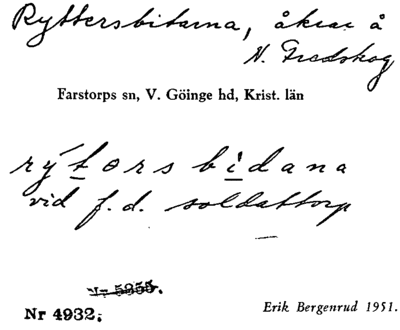 Ryttersbitarna, åkrar å
N. Fredskog
Farstorps sn, V. Göinge hd, Krist. län
rýtors bìdana
vid f.d. soldattorp
Nr 4932.
Erik Bergenrud 1951.